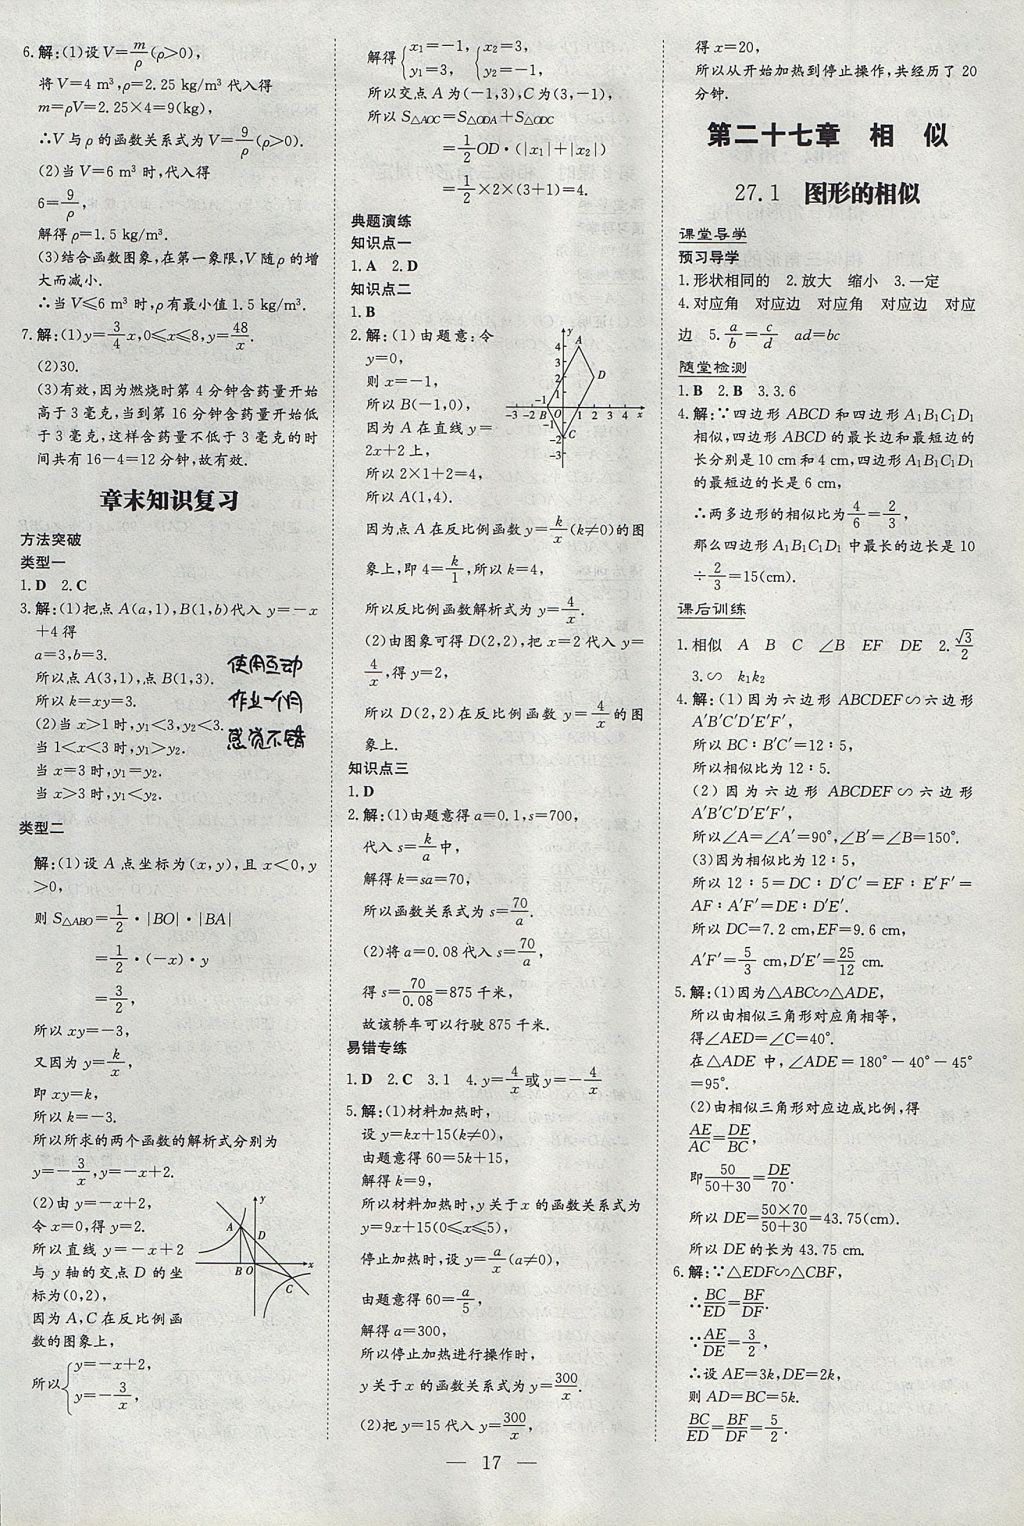 6.解:(1)设V=m/ρ(ρ>0),
将V=4 m³,ρ=2.25 kg/m³代入得
m=ρV=2.25×4=9(kg),
∴V与ρ的函数关系式为V=9/ρ(ρ>0).
(2)当V=6 m³时,代入得
6=9/ρ,
解得ρ=1.5 kg/m³.
(3)结合函数图象,在第一象限,V随ρ的增
大而减小.
∴当V≤6 m³时,ρ有最小值1.5 kg/m³.
7.解:(1)y=3/4x,0≤x≤8,y=48/x.
(2)30.
(3)有效,因为燃烧时第4分钟含药量开始
高于3毫克,当到第16分钟含药量开始低
于3毫克,这样含药量不低于3毫克的时
间共有16-4=12分钟,故有效.
章末知识复习
方法突破
类型一
1.D 2.C
3.解:(1)把点A(a,1),B(1,b)代入y=-x
+4得
a=3,b=3.
所以点A(3,1),点B(1,3).
所以k=xy=3.
(2)当x>1时,y₁<3,y₂<3.
当1<x<3时,y₁>y₂.
当x=3时,y₁=y₂.
当x>3时,y₁<y₂.
使用互动
作业一个月
感觉不错
类型二
解:(1)设A点坐标为(x,y),且x<0,y
>0,
则S△ABO=1/2·|BO|·|BA|
=1/2·(-x)·y
=3/2,
所以xy=-3,
又因为y=k/x,
即xy=k,
所以k=-3.
所以所求的两个函数的解析式分别为
y=-3/x,y=-x+2.
(2)由y=-x+2,
令x=0,得y=2.
所以直线y=-x+2
与y轴的交点D的坐
标为(0,2),
因为A,C在反比例函
数的图象上,
所以{y=-x+2,
y=-3/x,
y
A
D
B O x
C
解得{x₁=-1, {x₂=3,
y₁=3, y₂=-1,
所以交点A为(-1,3),C为(3,-1),
所以S△AOC=S△ODA+S△ODC
=1/2OD·(|x₁|+|x₂|)
=1/2×2×(3+1)=4.
典题演练
知识点一
1.A 2.D
知识点二
1.B
2.解:(1)由题意:令
y=0,
则x=-1,
所以B(-1,0),
因为A在直线y=
2x+2上,
所以2×1+2=4,
所以A(1,4).
y
4 A
3
2 D
1
-3 -2 -1 B O 1 2 3 4 x
-1
-2 C
-3
因为点A在反比例函数y=k/x(k≠0)的图
象上,即4=k/1,所以k=4,
所以反比例函数解析式为y=4/x.
(2)由图象可得D(2,2),把x=2代入y=
4/x,得y=2,
所以D(2,2)在反比例函数y=4/x的图
象上.
知识点三
1.D
2.解:(1)由题意得a=0.1,s=700,
代入s=k/a中,
解得k=sa=70,
所以函数关系式为s=70/a.
(2)将a=0.08代入s=70/a,
得s=70/0.08=875千米,
故该轿车可以行驶875千米.
易错专练
1.D 2.C 3.1 4.y=4/x或y=-4/x
5.解:(1)材料加热时,
设y=kx+15(k≠0),
由题意得60=5k+15,
解得k=9,
所以材料加热时,y关于x的函数关系式为
y=9x+15(0≤x≤5),
停止加热时,设y=a/x(a≠0),
由题意得60=a/5,
解得a=300,
所以停止加热进行操作时,
y关于x的函数关系式为y=300/x.
(2)把y=15代入y=300/x,
得x=20,
所以从开始加热到停止操作,共经历了20
分钟.
第二十七章 相 似
27.1 图形的相似
课堂导学
预习导学
1.形状相同的 2.放大 缩小 3.一定
4.对应角 对应边 对应角 对应边 对应
边 5.a/b=c/d ad=bc
随堂检测
1.B 2.B 3.3.6
4.解:∵四边形ABCD和四边形A₁B₁C₁D₁
相似,四边形ABCD的最长边和最短边的
长分别是10 cm和4 cm,四边形A₁B₁C₁D₁
的最短边的长是6 cm,
∴两多边形的相似比为4/6=2/3,
那么四边形A₁B₁C₁D₁中最长的边长是10
÷2/3=15(cm).
课后训练
1.相似 A B C ∠B EF DE 2.√3/2
3.∽ k₁k₂
4.解:(1)因为六边形ABCDEF∽六边形
A′B′C′D′E′F′,
所以BC∶B′C′=12∶5,
所以相似比为12∶5.
(2)因为六边形ABCDEF∽六边形
A′B′C′D′E′F′,
所以∠A=∠A′=90°,∠B′=∠B=150°.
(3)因为相似比为12∶5,
所以12∶5=DC∶D′C′=EF∶E′F′=
AF∶A′F′=DE∶D′E′.
所以DC=7.2 cm,EF=9.6 cm,
A′F′=5/3 cm,D′E′=25/12 cm.
5.解:(1)因为△ABC∽△ADE,
所以由相似三角形对应角相等,
得∠AED=∠C=40°.
在△ADE中,∠ADE=180°-40°-45°
=95°.
(2)由相似三角形对应边成比例,得
AE/AC=DE/BC,
即50/50+30=DE/70.
所以DE=50×70/50+30=43.75(cm).
所以DE的长为43.75 cm.
6.解:∵△EDF∽△CBF,
∴BC/ED=BF/DF.
∵AE/DE=3/2,
∴设AE=3k,DE=2k,
则AD=BC=5k.
BC/ED=BF/DF=5/2.
— 17 —